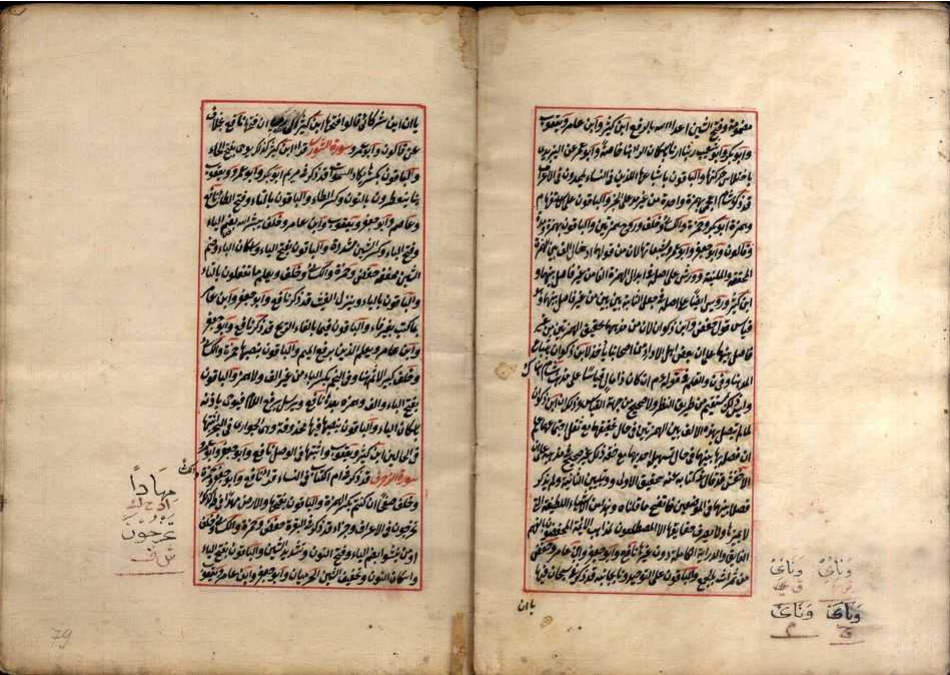 مضمومة وفتح الشين اعداء الله بالرفع ابن كثير وابن عامر ويعقوب
وابو بكر وابو شعيب ارنا باسكان الراء هنا خاصة وابو عمر عن اليزيدي
باختلاس حركتها والباقون باشباعها اللذين في النساء يلحدون في الاعراف
قد ذكر هشام اعجمي بهمزة واحدة من غير مد على الخبر والباقون على الاستفهام
وبهمزة ابو بكر وحمزة والكسائي وخلف وروح بهمزتين والباقون بهمزة ومد
وقالون وابو جعفر وابو عمرو يشبعانها لان من قولهم ادخال الف بين الهمزة
المحققة والملينة وورش على اصله في ابدال الهمزة الفا من غير فاصل بينهما و
ابن كثير ورويس ايضا على اصلهما في جعل الثانية بين بين من غير فاصل بينهما وهو
قياس قول حفص وابن ذكوان لان من مذهبهما تحقيق الهمزتين من غير
فاصل بينهما على ان بعض اهل الاداء من اصحابنا ياخذ لابن ذكوان باشباع
المد هنا وفي ن والقلم في قوله ان كان ذا مال قياسا على مذهب هشام هناك
وليس ذلك بمستقيم من طريق النظر ولا صحيح من جهة القياس وذلك ان ابن ذكوان
لما لم يفصل بهذه الالف بين الهمزتين في حال تحقيقهما مع ثقل اجتماعهما علم
ان فصله بها بينهما في حال تسهيل احديهما مع خفة ذلك غير صحيح في مذهبه على ان
الاخفش قد قال في كتابه عنه بتحقيق الاولى وتسهيل الثانية ولم يذكر
فصلا بينهما في الموضعين فاتضح ما قلناه وهذا من الاشياء اللطيفة التي
لا يميزها ولا يعرف حقايقها الا المطلعون بمذاهب الائمة المختصون بالفهم
الفائق والدراية الكاملة دون غيرهم نافع وابو جعفر وابن عامر وحفص
من ثمرات بالجمع والباقون على التوحيد ونأى بجانبه قد ذكر في سبحان فيها
يا ان
ونأى ونأى
ونأى ونأى
يا ان اين شركائي قالوا فتحها ابن كثير الى ربي ان فتحها نافع بخلاف
عن قالون وابو عمرو سورة الشورى قرا ابن كثير كذلك يوحى بفتح الحاء
والباقون بكسرها تكاد السموات قد ذكر في مريم ابو بكر وابو عمرو ويعقوب
هنا ينفطرن بالنون وكسر الطاء والباقون بالتاء وفتح الطاء نافع
وعاصم وابو جعفر ويعقوب وابن عامر وخلف يبشر الله بضم الياء
وفتح الباء وكسر الشين مشددة والباقون بفتح الياء واسكان الباء وضم
الشين مخففة حفص وحمزة والكسائي وخلف ويعلم ما تفعلون بالتاء
والباقون بالياء وينزل الغيث قد ذكر نافع وابو جعفر وابن عامر
بما كسبت بغير فاء والباقون فبما بالفاء الريح قد ذكر نافع وابو جعفر
وابن عامر ويعلم الذين برفع الميم والباقون بنصبها حمزة والكسائي
وخلف كبير الاثم هنا وفي النجم بكسر الباء من غير الف ولا همز والباقون
بفتح الباء والف وهمزة بعدها نافع او يرسل برفع اللام فيوحي باذنه
باسكان الياء والباقون بنصبها فيها محذوفة ومن الجواري في البحر اثبتها
في الحالين ابن كثير ويعقوب واثبتها في الوصل نافع وابو جعفر وابو عمرو
سورة الزخرف قد ذكر في ام الكتاب في النساء قد نافع وابو جعفر وحمزة والكسائي
وخلف صفحا ان كنتم بكسر الهمزة والباقون بفتحها والارض مهدا في طه وكذلك
تخرجون في الاعراف وجزءا قد ذكر في البقرة حفص وحمزة والكسائي وخلف
اومن ينشوا بضم الياء وفتح النون وتشديد الشين والباقون بفتح الياء
واسكان النون وتخفيف الشين الحرميان وابو جعفر وابن عامر ويعقوب
مهادا
تخرجون
79